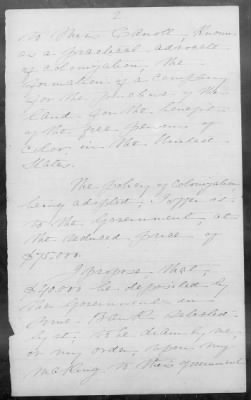 2
to Thos
Known
as a practical advocate
of colonization, the
formation of a company
for the purchase of the
land for the benefit
of the free persons of
color in the United
States.
The policy of colonization
being adopted, I offer
to the Government, at
the reduced price of
$75.000.
I propose that,
$40000 be deposited by
the Government in
some Bank selected
by it, to be drawn by me
or my order, upon my
making to the Government